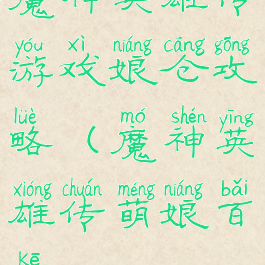 魔神英雄传
yóu xì niáng cāng gōng
游戏娘仓攻
lüè mó shén yīng
略（魔神英
xióng chuán méng niáng bǎi
雄传萌娘百
kē